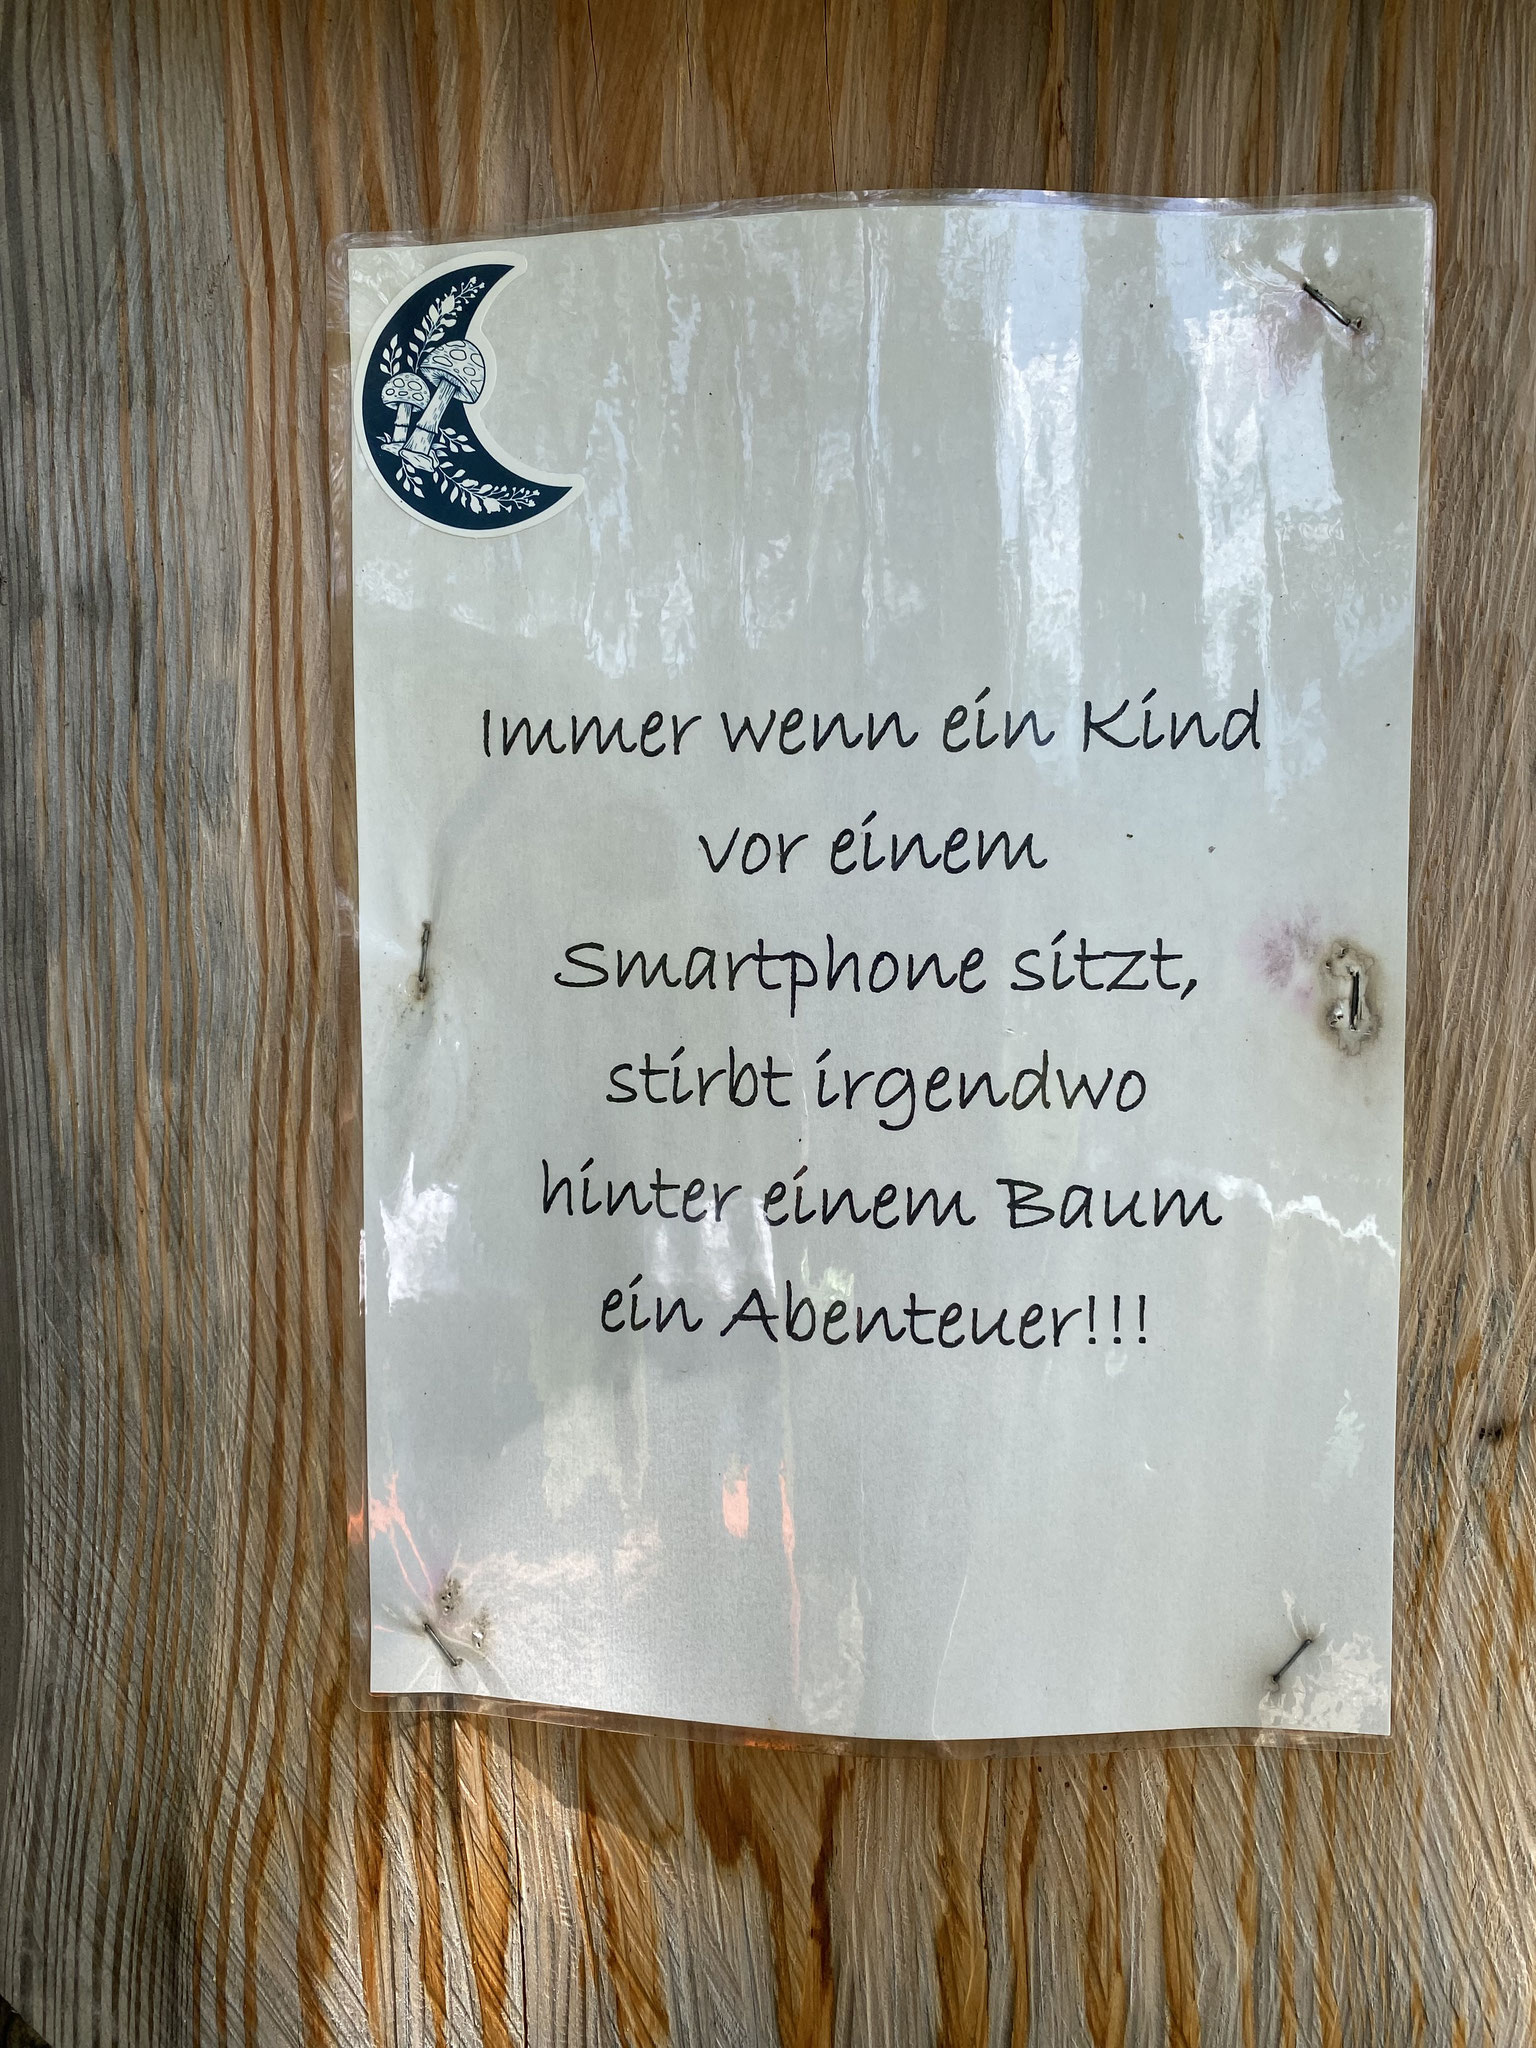 Immer wenn ein Kind
vor einem
Smartphone sitzt,
stirbt irgendwo
hinter einem Baum
ein Abenteuer!!!